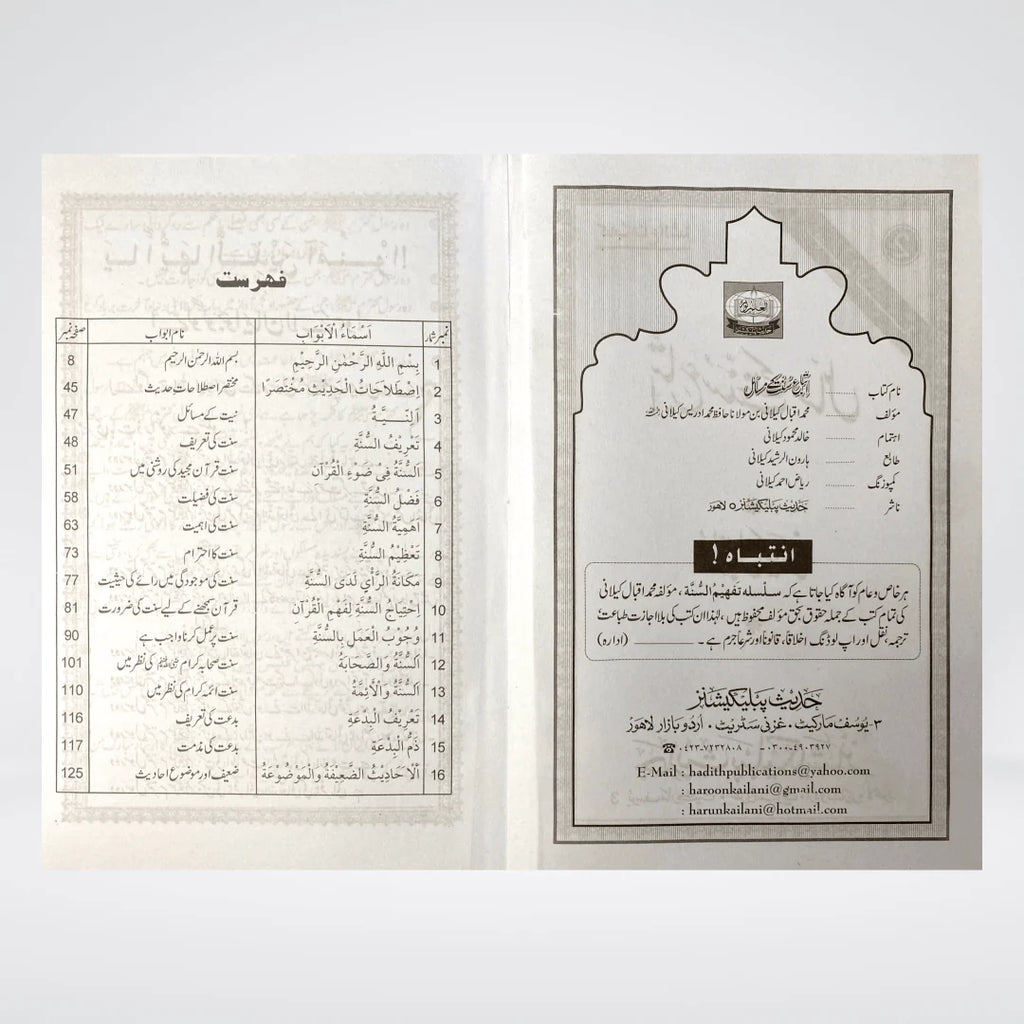 نام کتاب .......... اتباع سنت کے مسائل
مؤلف .......... محمد اقبال کیلانی بن مولانا حافظ محمد ادریس کیلانی رحمہ اللہ
اہتمام .......... خالد محمود کیلانی
طابع .......... ہارون الرشید کیلانی
کمپوزنگ .......... ریاض احمد کیلانی
ناشر .......... حدیث پبلیکیشنز ٥ لاہور
انتباہ !
ہر خاص و عام کو آگاہ کیا جاتا ہے کہ سلسلہ تفہیم السنۃ ، مؤلفہ محمد اقبال کیلانی
کی تمام کتب کے جملہ حقوق بحق مؤلف محفوظ ہیں ، لہٰذا ان کتب کی بلا اجازت طباعت ،
ترجمہ، نقل اور اپ لوڈنگ اخلاقاً، قانوناً اور شرعاً جرم ہے ۔ ــــــــــ (ادارہ)
حدیث پبلیکیشنز
۳- یوسف مارکیٹ ۰ غزنی سٹریٹ ۰ اردو بازار لاہور
☎ ۰۴۲۳-۷۲۳۲۸۰۸ – ۰۳۰۰-۴۹۰۳۹۲۷
E-Mail : hadithpublications@yahoo.com
: haroonkailani@gmail.com
: harunkailani@hotmail.com
فہرست
نمبر شمار اَسْمَاءُ الْاَبْوَابِ نام ابواب صفحہ نمبر
1 بِسْمِ اللّٰهِ الرَّحْمٰنِ الرَّحِيْمِ بسم اللہ الرحمٰن الرحیم 8
2 اِصْطِلَاحَاتُ الْحَدِيْثِ مُخْتَصَرًا مختصر اصطلاحات حدیث 45
3 اَلنِّــيَّــةُ نیت کے مسائل 47
4 تَعْرِيْفُ السُّنَّةِ سنت کی تعریف 48
5 اَلسُّنَّةُ فِىْ ضَوْءِ الْقُرْآنِ سنت قرآن مجید کی روشنی میں 51
6 فَضْلُ السُّنَّةِ سنت کی فضیلت 58
7 اَهَمِيَّةُ السُّنَّةِ سنت کی اہمیت 63
8 تَعْظِيْمُ السُّنَّةِ سنت کا احترام 73
9 مَكَانَةُ الرَّأْىِ لَدَى السُّنَّةِ سنت کی موجودگی میں رائے کی حیثیت 77
10 اِحْتِيَاجُ السُّنَّةِ لِفَهْمِ الْقُرْآنِ قرآن سمجھنے کے لیے سنت کی ضرورت 81
11 وُجُوْبُ الْعَمَلِ بِالسُّنَّةِ سنت پر عمل کرنا واجب ہے 90
12 اَلسُّنَّةُ وَالصَّحَابَةُ سنت صحابہ کرام رضی اللہ عنہم کی نظر میں 101
13 اَلسُّنَّةُ وَالْاَئِمَّةُ سنت ائمہ کرام کی نظر میں 110
14 تَعْرِيْفُ الْبِدْعَةِ بدعت کی تعریف 116
15 ذَمُّ الْبِدْعَةِ بدعت کی مذمت 117
16 اَلْاَحَادِيْثُ الضَّعِيْفَةُ وَالْمَوْضُوْعَةُ ضعیف اور موضوع احادیث 125